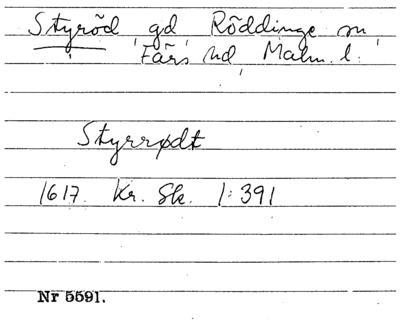 Styröd, gd Röddinge sn,
Färs hd, Malm. l.
Styrrødt
1617. Kr. Sk. 1:391
Nr 5591.